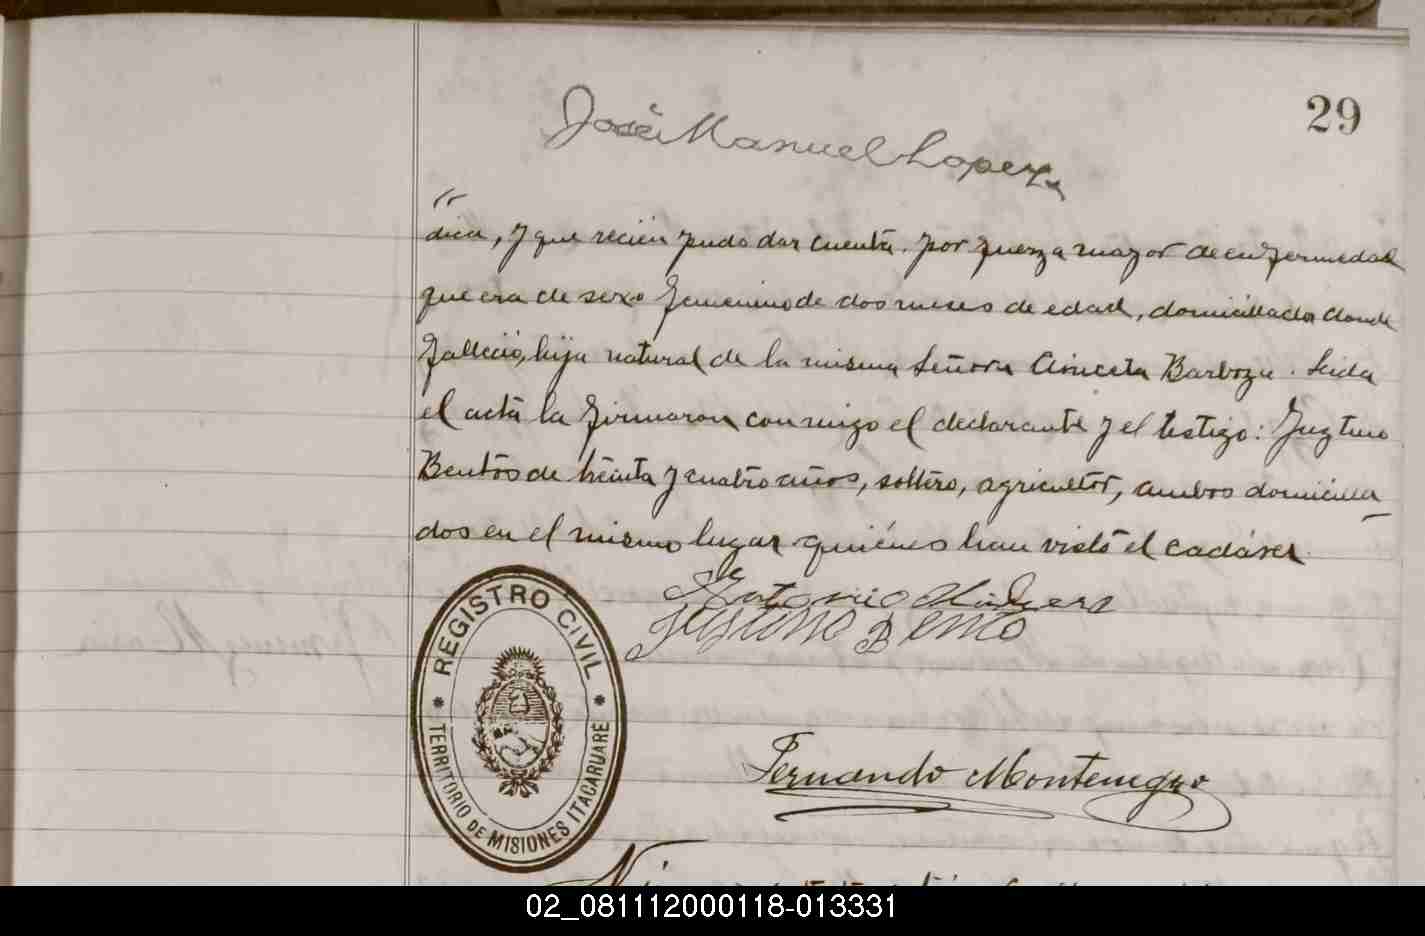 29
José Manuel Lopez
dica, y que recién pudo dar cuenta por fuerza mayor de enfermedad
que era de sexo femenino de dos meses de edad, domiciliada donde
falleció, hija natural de la misma Señora Aniceta Barboza. Leida
el acta la firmaron conmigo el declarante y el testigo: Justino
Bentos de treinta y cuatro años, soltero, agricultor, ambos domicilia
dos en el mismo lugar quiénes han visto el cadáver.
Antonio
Justino Bento
REGISTRO CIVIL
TERRITORIO DE MISIONES ITACARUARE
Fernando Montenegro
02_081112000118-013331